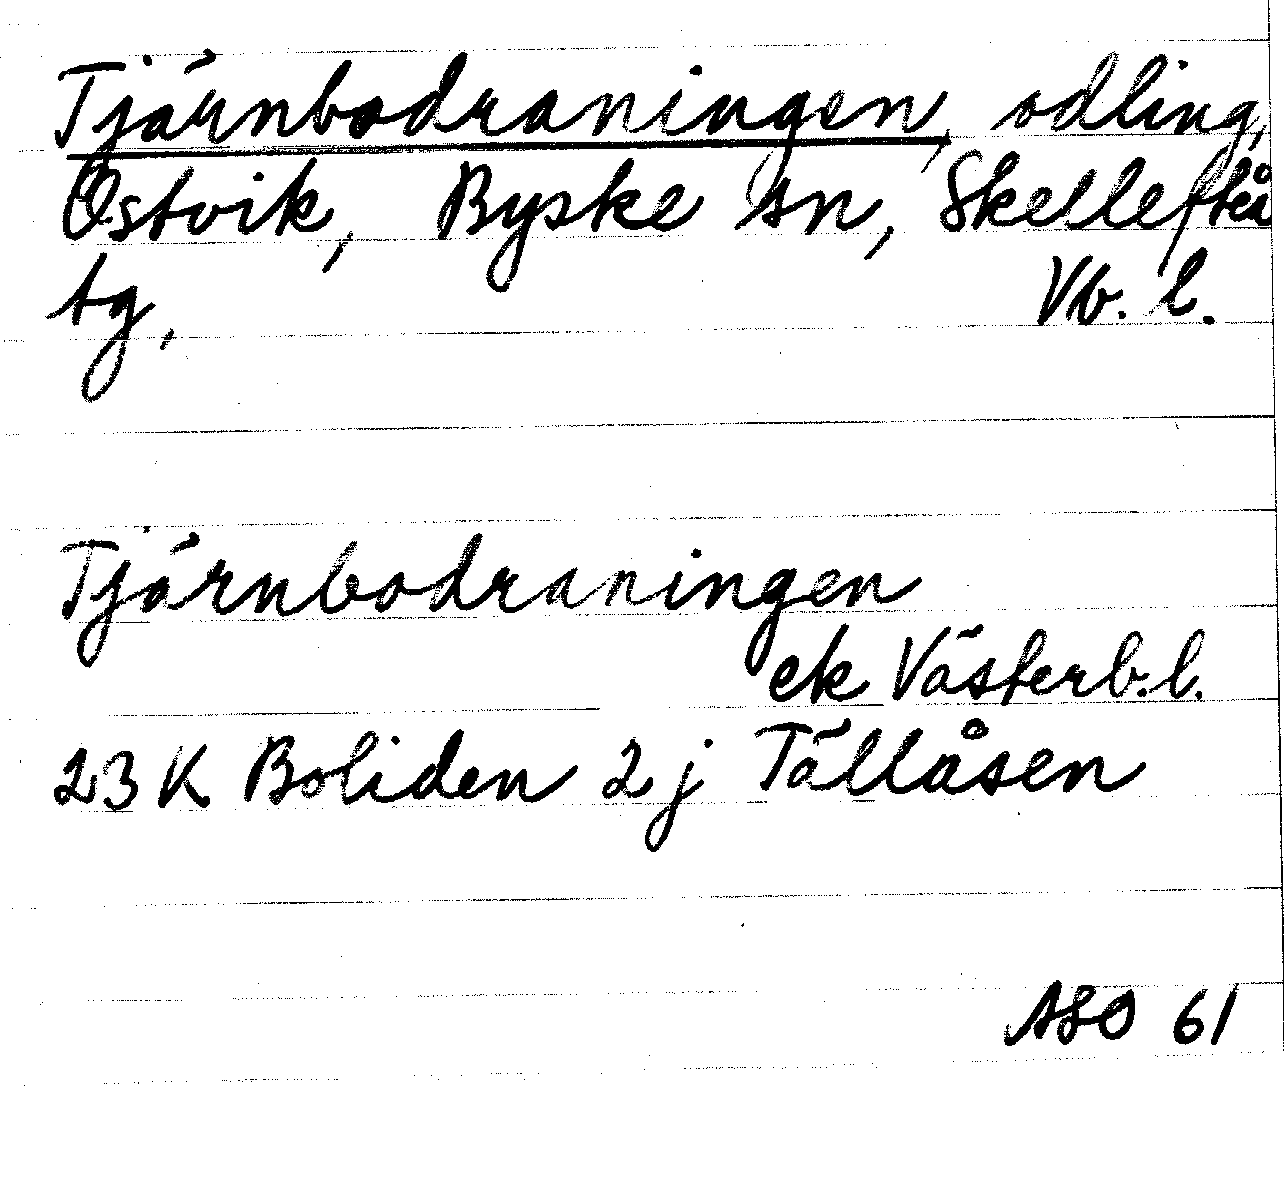 Tjärnbodraningen, odling,
Östvik, Byske sn, Skellefteå
tg, Vb. l.
Tjärnbodraningen
ek Västerb.l.
23 K Boliden 2 j Tällåsen
ASO 61